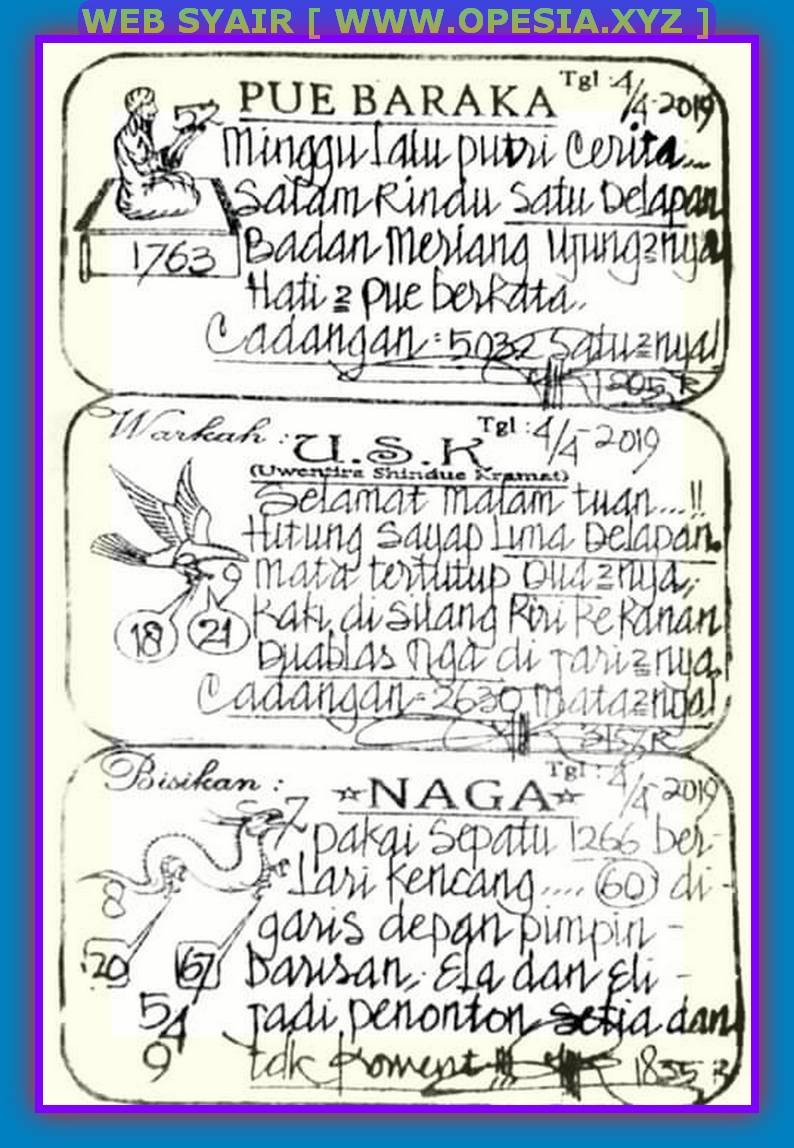 WEB SYAIR [ WWW.OPESIA.XYZ ]
PUE BARAKA
Tgl : 4/4-2019
52
Minggu lalu putri cerita...
Salam Rindu Satu Delapan
1763
Badan Meriang Ujung2nya
Hati2 pue berkata.
Cadangan : 5032 Satu2nya!
1205 R
Warkah : U.S.K
Tgl : 4/4-2019
(Uwentira Shindue Kramat)
Selamat malam tuan...!!
Hitung Sayap Lima Delapan.
9
mata tertutup Dua2nya,
18 21
Kaki di Silang Kiri ke Kanan
Duablas nga di Jari2nya.
Cadangan = 2630 Mata2nya!
3157 R
Bisikan :
☆NAGA☆
Tgl : 4/4-2019
7
pakai Sepatu 1266 ber-
8
Lari kencang .... 60 di -
garis depan pimpin -
20 67
Barisan, Ela dan Eli -
54
Jadi penonton setia dan
9
tdk koment!!
1835 R